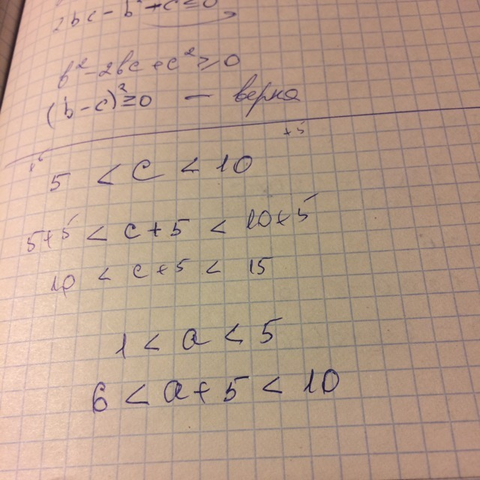 2bc - b² - c² ≤ 0
b² - 2bc + c² ≥ 0
(b - c)² ≥ 0 — верно
+5 +5
5 < c < 10
5+5 < c + 5 < 10+5
10 < c + 5 < 15
1 < a < 5
6 < a + 5 < 10